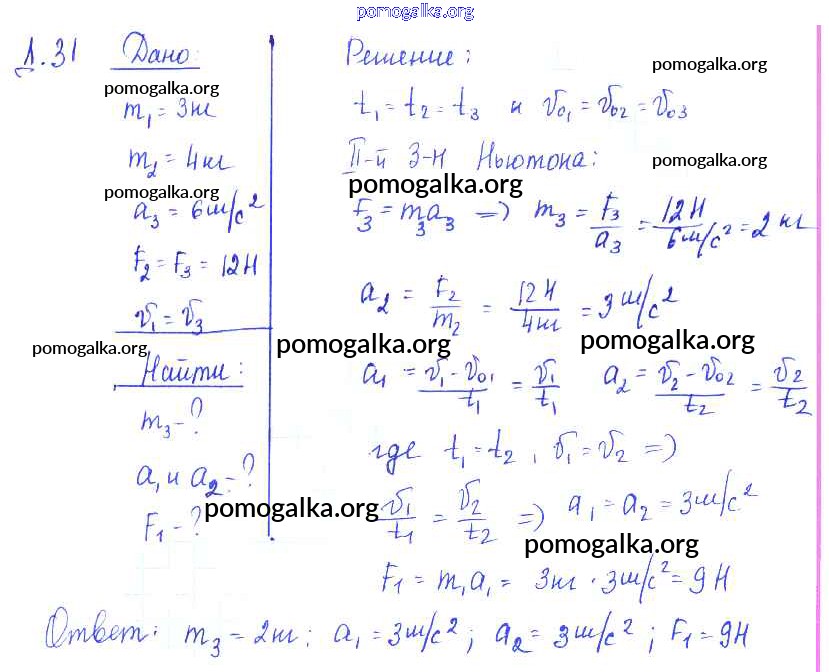 pomogalka.org
Л.31 Дано:
pomogalka.org
m₁ = 3кг
m₂ = 4кг
pomogalka.org
a₃ = 6м/с²
F₂ = F₃ = 12Н
v₁ = v₃
pomogalka.org
Найти:
m₃ - ?
a₁ и a₂ - ?
F₁ - ?
Решение:
pomogalka.org
t₁ = t₂ = t₃ и v₀₁ = v₀₂ = v₀₃
II-й З-н Ньютона:
pomogalka.org
pomogalka.org
F₃ = m₃a₃ => m₃ = F₃/a₃ = 12Н/6м/с² = 2кг
a₂ = F₂/m₂ = 12Н/4кг = 3м/с²
pomogalka.org
pomogalka.org
a₁ = v₁ - v₀₁/t₁ = v₁/t₁ a₂ = v₂ - v₀₂/t₂ = v₂/t₂
где t₁ = t₂, v₁ = v₂ =>
v₁/t₁ = v₂/t₂ => a₁ = a₂ = 3м/с²
pomogalka.org
pomogalka.org
F₁ = m₁a₁ = 3кг · 3м/с² = 9Н
Ответ: m₃ = 2кг; a₁ = 3м/с²; a₂ = 3м/с²; F₁ = 9Н